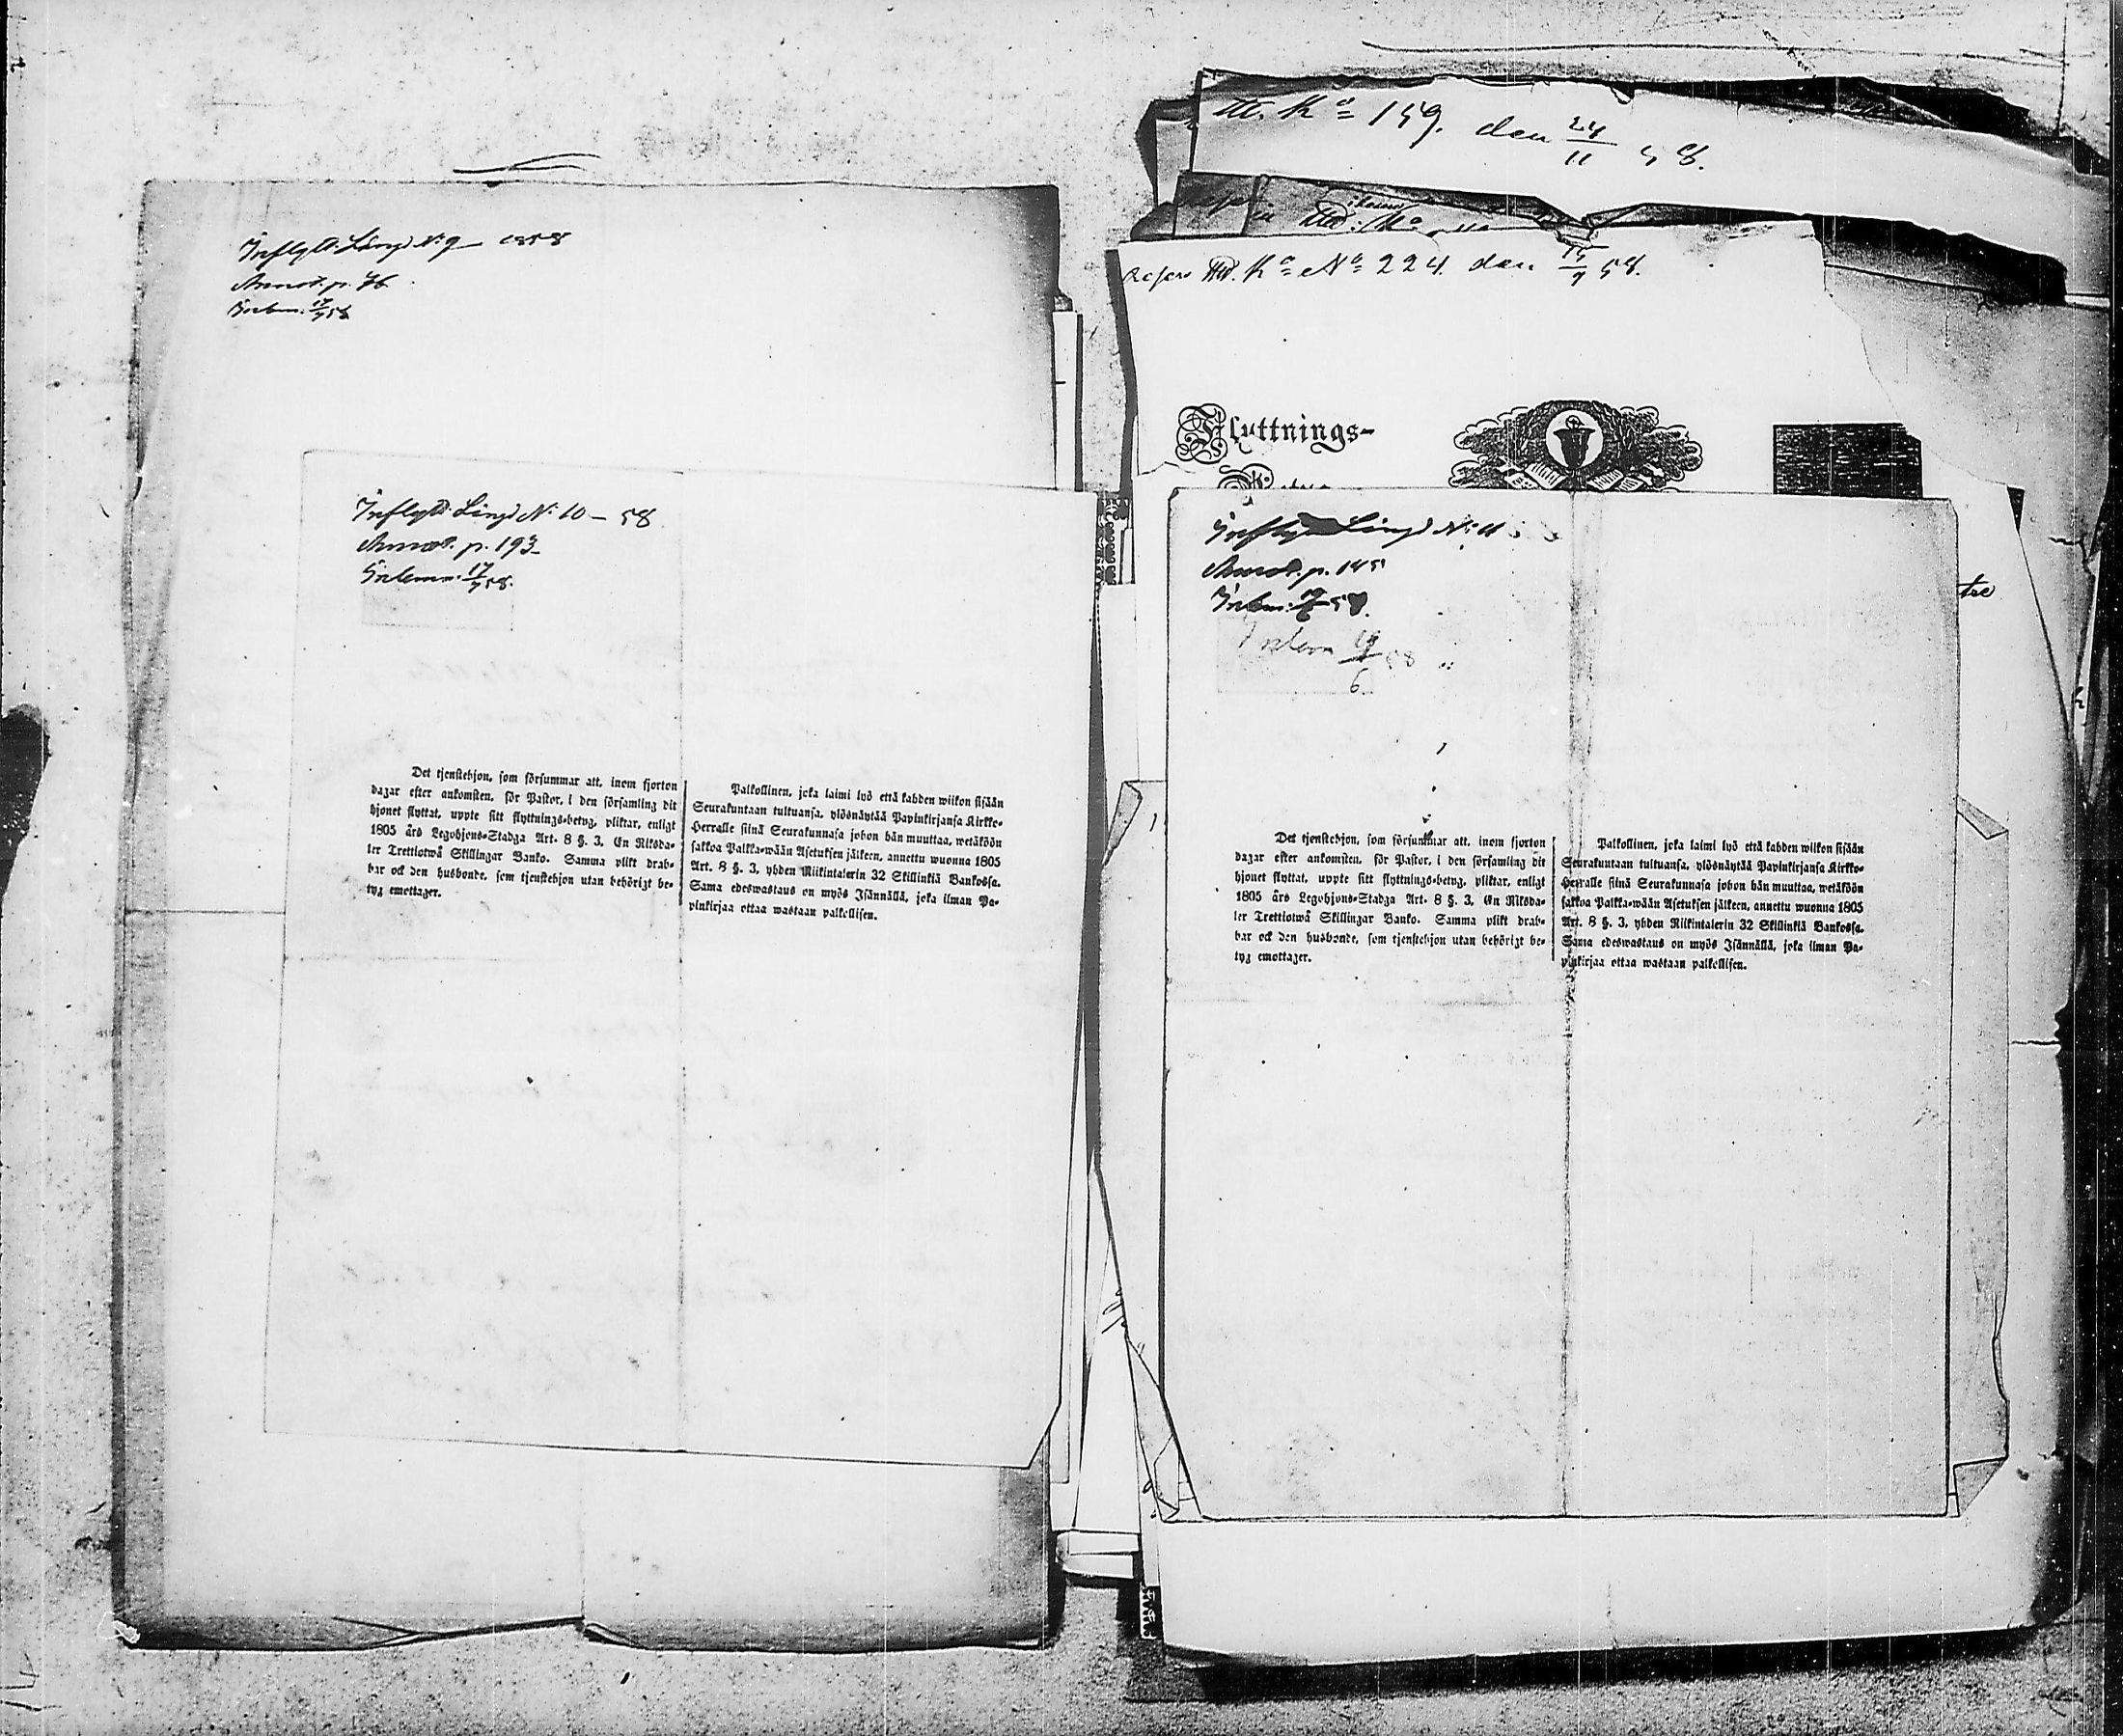 Inflytt. Längd N:o 9 — 1858
Annot. p. 76.
Inlemn. 17/7 58
Inflytt. Längd N:o 10 — 58
Annot. p. 193
Inlemn. 17/7 58.
Det tjenstehjon, som försummar att, inom fjorton
dagar efter ankomsten, för Pastor, i den församling dit
hjonet flyttat, uppte sitt flyttnings-betyg, pliktar, enligt
1805 års Legohjons-Stadga Art. 8 §. 3, En Riksda-
ler Trettiotwå Skillingar Banko. Samma plikt drab-
bar ock den husbonde, som tjenstehjon utan behörigt be-
tyg emottager.
Palkollinen, joka laimi lyö että kahden wiikon sisään
Seurakuntaan tultuansa, ylösnäytää Papinkirjansa Kirkko-
Herralle siinä Seurakunnasa johon hän muuttaa, wetäköön
sakkoa Palkka-wään Asetuksen jälkeen, annettu wuonna 1805
Art. 8 §. 3, yhden Riikintalerin 32 Skillinkiä Bankossa.
Sama edeswastaus on myös Isännällä, joka ilman Pa-
pinkirjaa ottaa wastaan palkollisen.
Att. K:o 159. den 24/11 58.
K:o
Att. K:o N:o 224. den 15/9 58.
Flyttnings-
Längd N:o 11
Annot. p. 145
Inlemn 58
6
Det tjenstehjon, som försummar att, inom fjorton
dagar efter ankomsten, för Pastor, i den församling dit
hjonet flyttat, uppte sitt flyttnings-betyg, pliktar, enligt
1805 års Legohjons-Stadga Art. 8 §. 3, En Riksda-
ler Trettiotwå Skillingar Banko. Samma plikt drab-
bar ock den husbonde, som tjenstehjon utan behörigt be-
tyg emottager.
Palkollinen, joka laimi lyö että kahden wiikon sisään
Seurakuntaan tultuansa, ylösnäytää Papinkirjansa Kirkko-
Herralle siinä Seurakunnasa johon hän muuttaa, wetäköön
sakkoa Palkka-wään Asetuksen jälkeen, annettu wuonna 1805
Art. 8 §. 3, yhden Riikintalerin 32 Skillinkiä Bankossa.
Sama edeswastaus on myös Isännällä, joka ilman Pa-
pinkirjaa ottaa wastaan palkollisen.